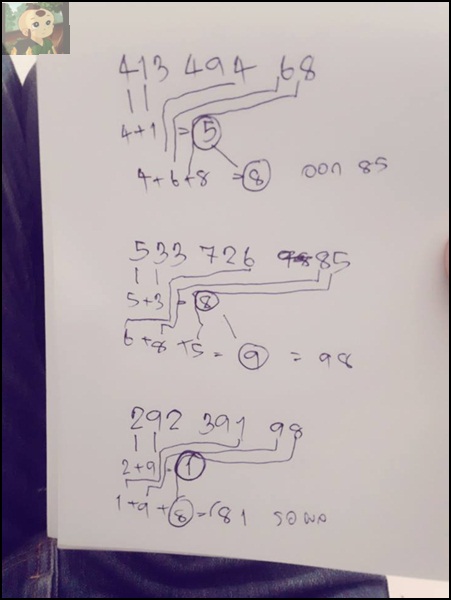 413 494 68
4+1 = 5
4+6+8 = 8 ออก 85
533 726 9885
5+3 = 8
6+8+5 = 9 = 98
292 391 98
2+9 = 1
1+9+8 = 81 รอผล